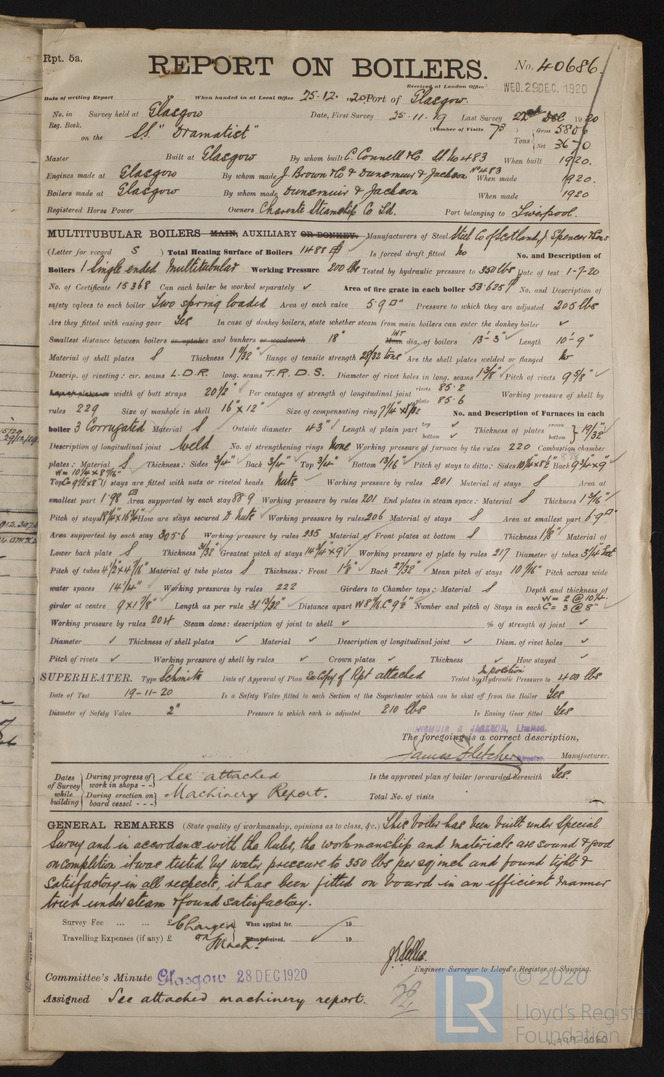 Rpt. 5a.
REPORT ON BOILERS.
No. 40686
Received at London Office
WED. 29 DEC. 1920
Date of writing Report When handed in at Local Office 25.12.1920 Port of Glasgow
No. in Reg. Book. Survey held at Glasgow Date, First Survey 25-11-19 Last Survey 22nd Dec 1920
on the S.S. "Dramatist" (Number of Visits 73) Tons Gross 5806 Net 3670
Master Built at Glasgow By whom built C. Connell & Co. St No 483 When built 1920.
Engines made at Glasgow By whom made J. Brown & Co & Dunsmuir & Jackson No 483 When made 1920.
Boilers made at Glasgow By whom made Dunsmuir & Jackson When made 1920
Registered Horse Power Owners Charente Steamship Co Ld. Port belonging to Liverpool.
MULTITUBULAR BOILERS MAIN, AUXILIARY OR DONKEY. Manufacturers of Steel Steel Co of Scotland, J. Spencer & Sons
(Letter for record S) Total Heating Surface of Boilers 1488 Is forced draft fitted no No. and Description of
Boilers 1 Single ended Multitubular Working Pressure 200 lbs Tested by hydraulic pressure to 350 lbs Date of test 1-7-20
No. of Certificate 15368 Can each boiler be worked separately ✓ Area of fire grate in each boiler 53.625 No. and Description of
safety valves to each boiler Two spring loaded Area of each valve 5.9□" Pressure to which they are adjusted 205 lbs
Are they fitted with easing gear Yes In case of donkey boilers, state whether steam from main boilers can enter the donkey boiler ✓
Smallest distance between boilers or uptakes and bunkers or woodwork 18" Mean INT dia. of boilers 13'-3" Length 10'-9"
Material of shell plates S Thickness 1 1/32" Range of tensile strength 28/32 tons Are the shell plates welded or flanged no
Descrip. of riveting: cir. seams L.D.R. long. seams T.R.D.S. Diameter of rivet holes in long. seams 1 3/8" Pitch of rivets 9 5/8"
Lap of plates or width of butt straps 20 1/2" Per centages of strength of longitudinal joint rivets 85.2 plate 85.6 Working pressure of shell by
rules 229 Size of manhole in shell 16" x 12" Size of compensating ring No. and Description of Furnaces in each
boiler 3 Corrugated Material S Outside diameter 43" Length of plain part top bottom Thickness of plates crown bottom 19/32"
Description of longitudinal joint weld No. of strengthening rings none Working pressure of furnace by the rules 220 Combustion chamber
plates: Material S Thickness: Sides 3/4" Back 3/4" Top 3/4" Bottom 13/16" Pitch of stays to ditto: Sides Back 9 3/4" x 9"
Top If stays are fitted with nuts or riveted heads nuts Working pressure by rules 201 Material of stays S Area at
smallest part 1.98 Area supported by each stay 88.9 Working pressure by rules 201 End plates in steam space: Material S Thickness 1 5/16"
Pitch of stays How are stays secured D nuts Working pressure by rules 206 Material of stays S Area at smallest part 6.9□"
Area supported by each stay 305.6 Working pressure by rules 235 Material of Front plates at bottom S Thickness 1 1/8" Material of
Lower back plate S Thickness Greatest pitch of stays Working pressure of plate by rules 217 Diameter of tubes
Pitch of tubes 4 1/2" x 4 7/16" Material of tube plates S Thickness: Front 1 1/8" Back 27/32" Mean pitch of stays 10 7/16" Pitch across wide
water spaces 14 1/4" Working pressures by rules 222 Girders to Chamber tops: Material S Depth and thickness of
girder at centre 9 x 1 7/8" Length as per rule 31 3/32" Distance apart W 8 7/16 C 9 1/2" Number and pitch of Stays in each W = 2 @ 10 1/4 C = 3 @ 8"
Working pressure by rules 204 Steam dome: description of joint to shell ✓ % of strength of joint ✓
Diameter ✓ Thickness of shell plates ✓ Material ✓ Description of longitudinal joint ✓ Diam. of rivet holes ✓
Pitch of rivets ✓ Working pressure of shell by rules ✓ Crown plates ✓ Thickness ✓ How stayed ✓
SUPERHEATER. Type Schmidts Date of Approval of Plan See Copy of Rpt attached Tested by Hydraulic Pressure to 400 lbs
Date of Test 19-11-20 Is a Safety Valve fitted to each Section of the Superheater which can be shut off from the Boiler Yes
Diameter of Safety Valve 2" Pressure to which each is adjusted 210 lbs Is Easing Gear fitted Yes
DUNSMUIR & JACKSON, Limited.
The foregoing is a correct description,
James Fletcher Director Manufacturer.
Dates of Survey while building During progress of work in shops - - See attached Is the approved plan of boiler forwarded herewith Yes.
During erection on board vessel - - - Machinery Report. Total No. of visits
GENERAL REMARKS (State quality of workmanship, opinions as to class, &c.) This boiler has been built under Special
Survey and in accordance with the Rules, the workmanship and materials are sound & good
on completion it was tested by water pressure to 350 lbs per sq inch and found tight &
satisfactory in all respects, it has been fitted on board in an efficient manner
tried under steam & found satisfactory.
Survey Fee ... ... £ Charged When applied for, 19
Travelling Expenses (if any) £ on Mach. When received, 19
Engineer Surveyor to Lloyd's Register of Shipping.
Committee's Minute Glasgow 28 DEC 1920
Assigned See attached machinery report.
© 2020
LR
Lloyd's Register
Foundation